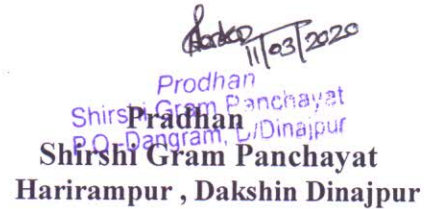 11/03/2020
Prodhan
Shirshi Gram Panchayat
P.O.-Dangram, D/Dinajpur
Pradhan
Shirshi Gram Panchayat
Harirampur , Dakshin Dinajpur